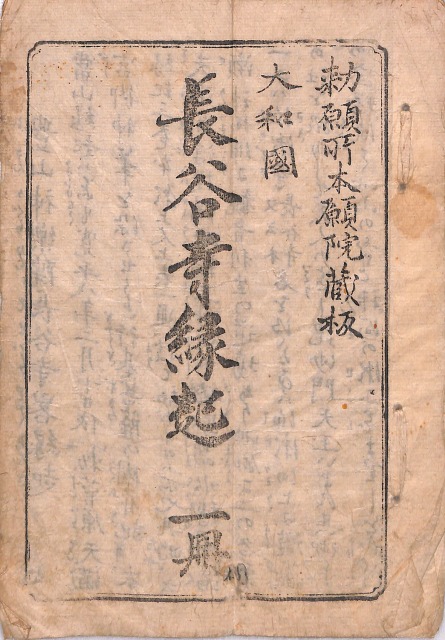 勅願所本願院蔵板
大和國
長谷寺縁起 一冊